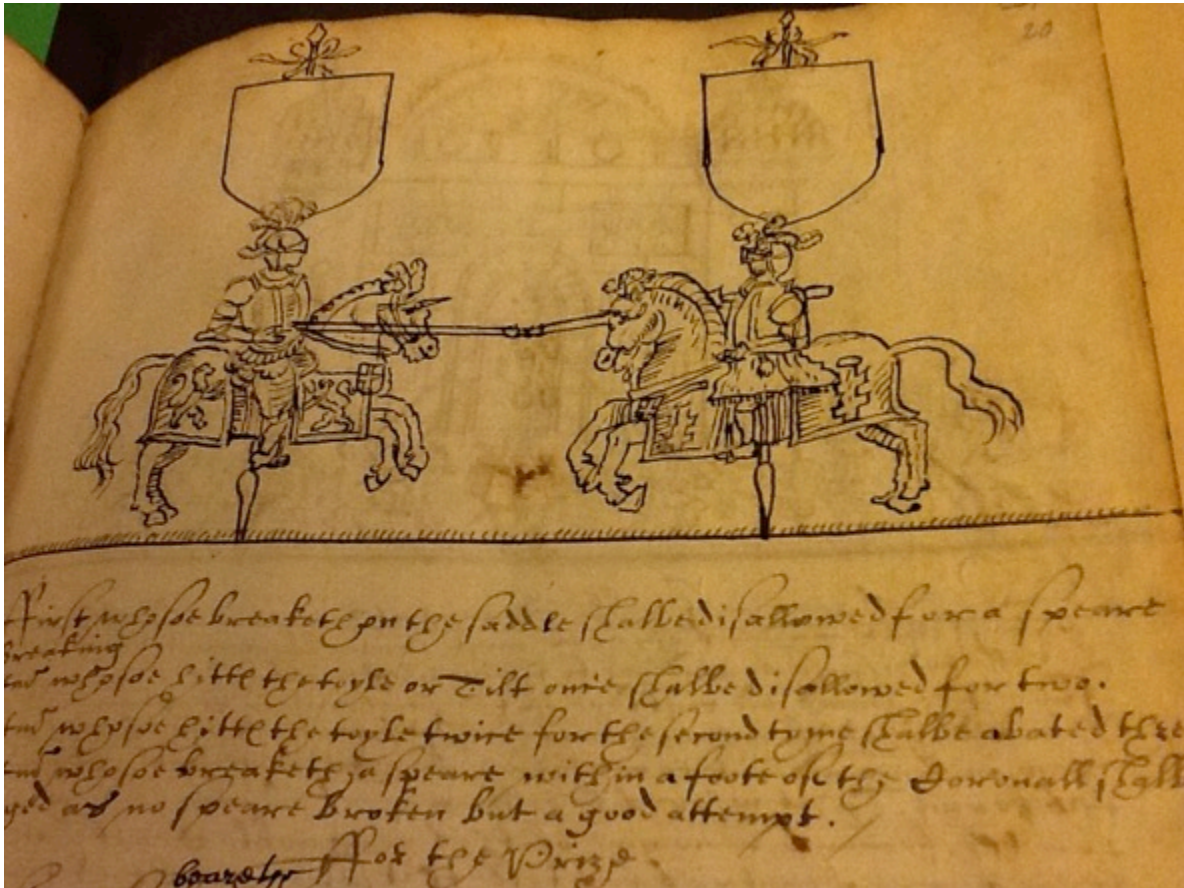 20
First whoso breaketh on the saddle shalbe disallowed for a speare
breaking
whosoe hittᵗʰ the toyle or Tilt once shalbe disallowed for two.
whosoe hittᵗʰ the toyle twice for the second tyme shalbe abated thre
whosoe breaketh a speare within a foote of the Coronall shall
as no speare broken but a good attempt.
For the Prize
beareth